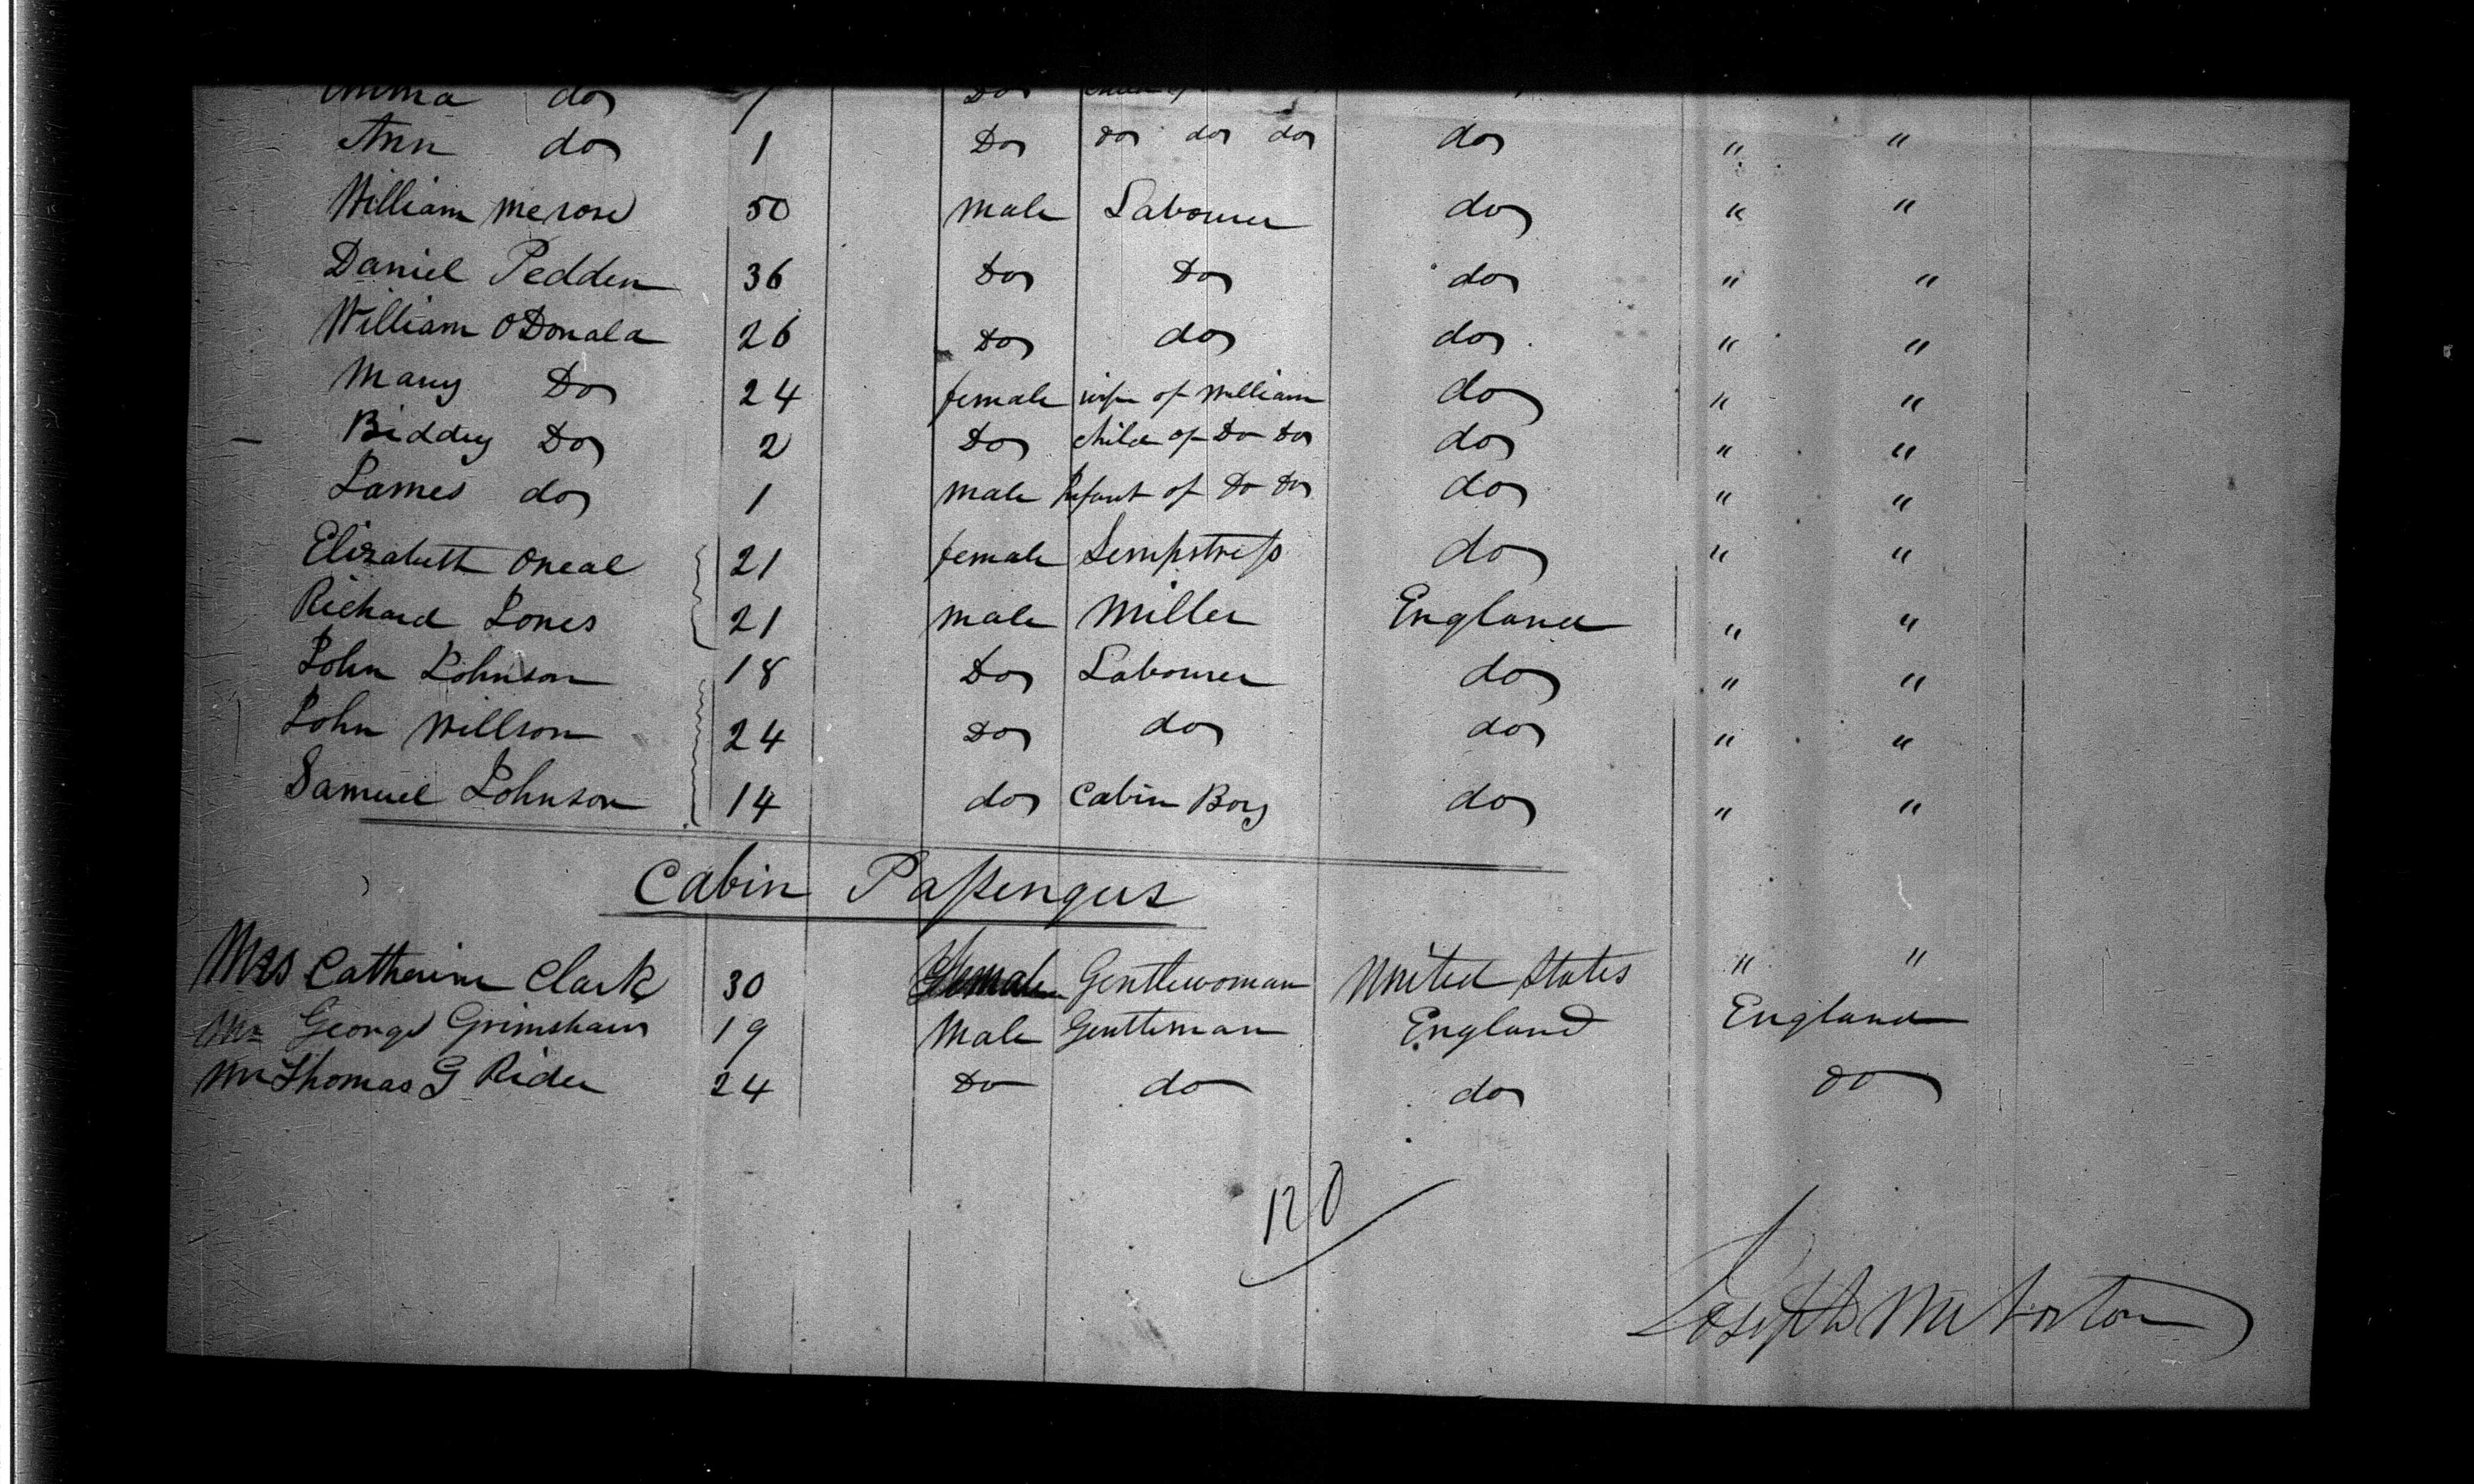 Emma do
Ann do 1 Do do do do do " "
William Merose 50 Male Labourer do " "
Daniel Pedden 36 Do Do do " "
William ODonald 26 Do do do " "
Mary Do 24 female wife of William do " "
Biddy Do 2 Do child of Do Do do " "
James do 1 Male Infant of Do Do do " "
Elizabeth Oneal 21 female Sempstress do " "
Richard Jones 21 Male Miller England " "
John Johnson 18 Do Labourer do " "
John Willson 24 Do do do " "
Samuel Johnson 14 do Cabin Boy do " "
Cabin Passengers
Mrs Catherine Clark 30 Female Gentlewoman United States " "
Mr George Grimshaw 19 Male Gentleman England England
Mr Thomas G Rider 24 Do do do Do
120
Joseph